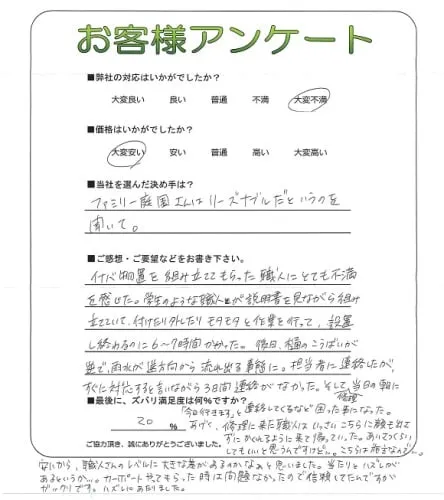 お客様アンケート
■弊社の対応はいかがでしたか?
大変良い 良い 普通 不満 大変不満
■価格はいかがでしたか?
大変安い 安い 普通 高い 大変高い
■当社を選んだ決め手は?
ファミリー庭園さんはリーズナブルだというのを
聞いて。
■ご感想・ご要望などをお書き下さい。
イナバ物置を組み立ててもらった職人にとても不満
を感じた。学生のような職人が説明書を見ながら組み
立てていて、付けたり外したりモタモタと作業を行って、設置
し終わるのに6~7時間かかった。後日、樋のこうばいが
逆で、雨水が逆方向から流れ出る事態に。担当者に連絡したが、
すぐに対応すると言いながら3日間連絡がなかった。そして、当日の朝に
■最後に、ズバリ満足度は何%ですか?
「今日行きます」と連絡してくるなど困った事になった。
20 %
あげく、修理に来た職人はいっさいこちらに顔を出さ
ご協力頂き、誠にありがとうございました。
ずにかくれるように来て帰っていった。あいさつくらい
してもいいと思うんですけど。
安いから、職人さんのレベルに大きな差があるのかなぁと思いました。当たりとハズレが
あるというか…。カーポートをやってもらった時は問題なかったので信頼してたんですが
ガックリです。ハズレにあたりました。